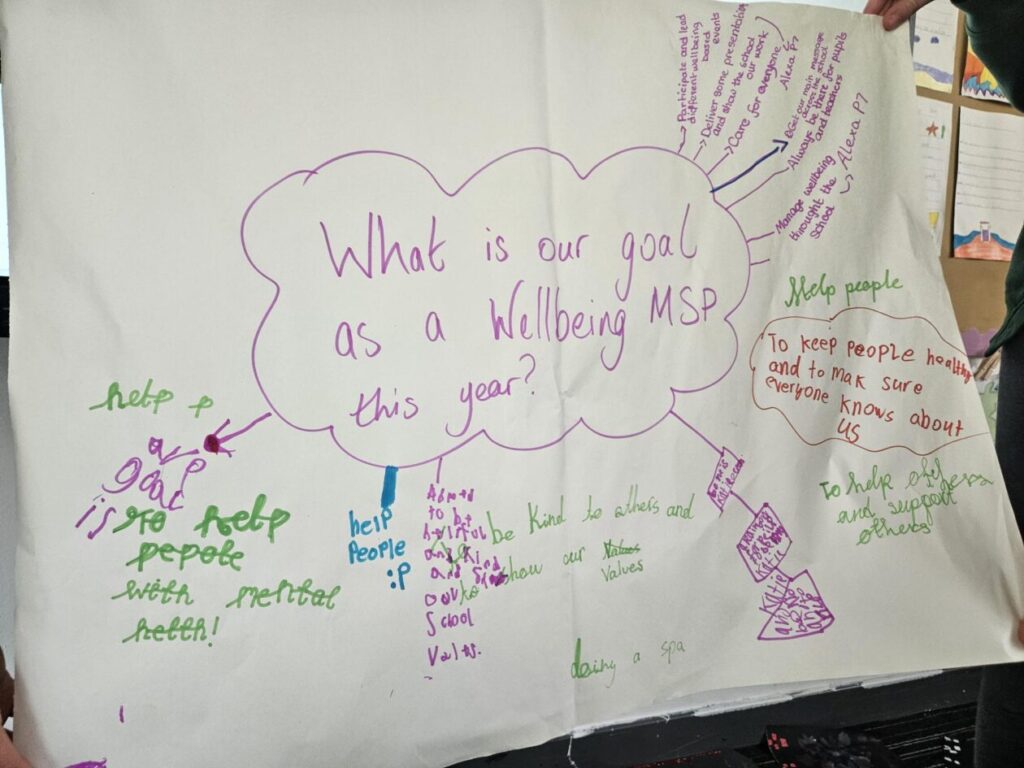 What is our goal
as a Wellbeing MSP
this year?
Participate and lead
different wellbeing
based events
Deliver some presentation
and show the school
our work
Care for everyone
Alexa P7
Get our main message
across the school
Always be there for pupils
and teachers
Manage wellbeing
throught the
school
Alexa P7
Help people
To keep people healthy
and to mak sure
everyone knows about
us
To help others
and support
others
help p
goal
is To help
pepole
with mental
helth!
help
People
:P
to be
and kind
our
School
Values.
be Kind to others and
to show our Values
Values
doing a spa